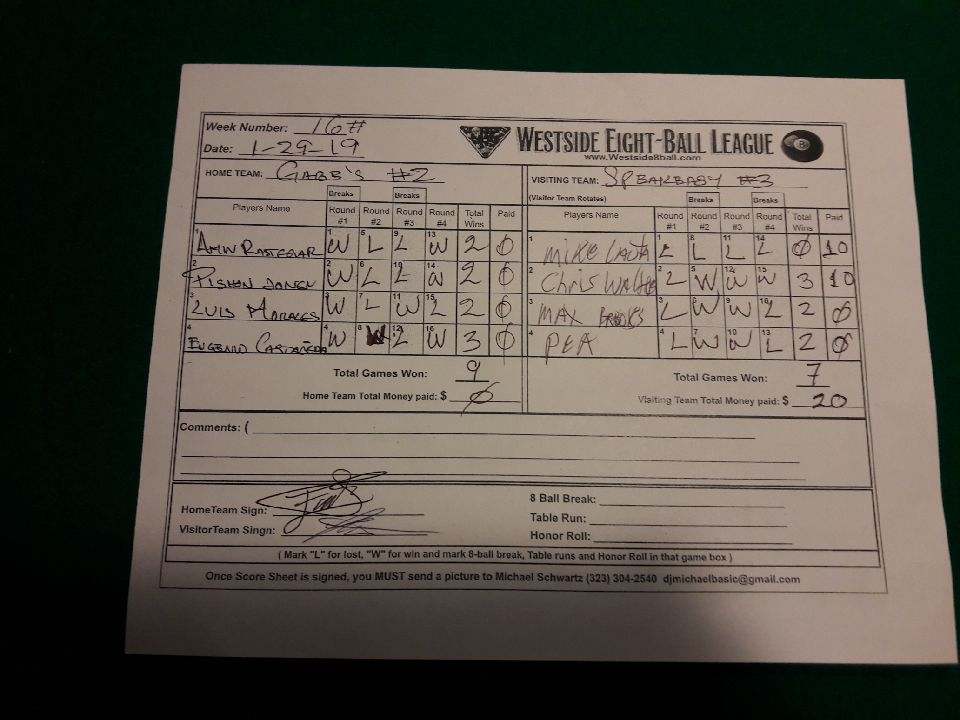 Week Number: 16#
WESTSIDE EIGHT-BALL LEAGUE
Date: 1-29-19
www.Westside8ball.com
HOME TEAM: GABB'S #2 VISITING TEAM: #3
(Visitor Team Rotates)
Breaks Breaks Breaks Breaks
Players Name Round #1 Round #2 Round #3 Round #4 Total Wins Paid Players Name Round #1 Round #2 Round #3 Round #4 Total Wins Paid
1 AMIN 1 W 5 L 9 L 13 W 2 0 1 MIKE 1 L 8 L 11 L 14 L 0 10
2 2 W 6 L 10 L 14 W 2 0 2 Chris 2 L 5 W 12 W 15 W 3 10
3 LUIS MORALES 3 W 7 L 11 W 15 L 2 0 3 MAX BROOKS 3 L 6 W 9 W 16 L 2 0
4 EUGENIO CASTAÑEDA 4 W 8 W 12 L 16 W 3 0 4 PEA 4 L 7 W 10 W 13 L 2 0
Total Games Won: 9 Total Games Won: 7
Home Team Total Money paid: $ 0 Visiting Team Total Money paid: $ 20
Comments: (
HomeTeam Sign:
VisitorTeam Singn:
8 Ball Break:
Table Run:
Honor Roll:
( Mark "L" for lost, "W" for win and mark 8-ball break, Table runs and Honor Roll in that game box )
Once Score Sheet is signed, you MUST send a picture to Michael Schwartz (323) 304-2540 djmichaelbasic@gmail.com